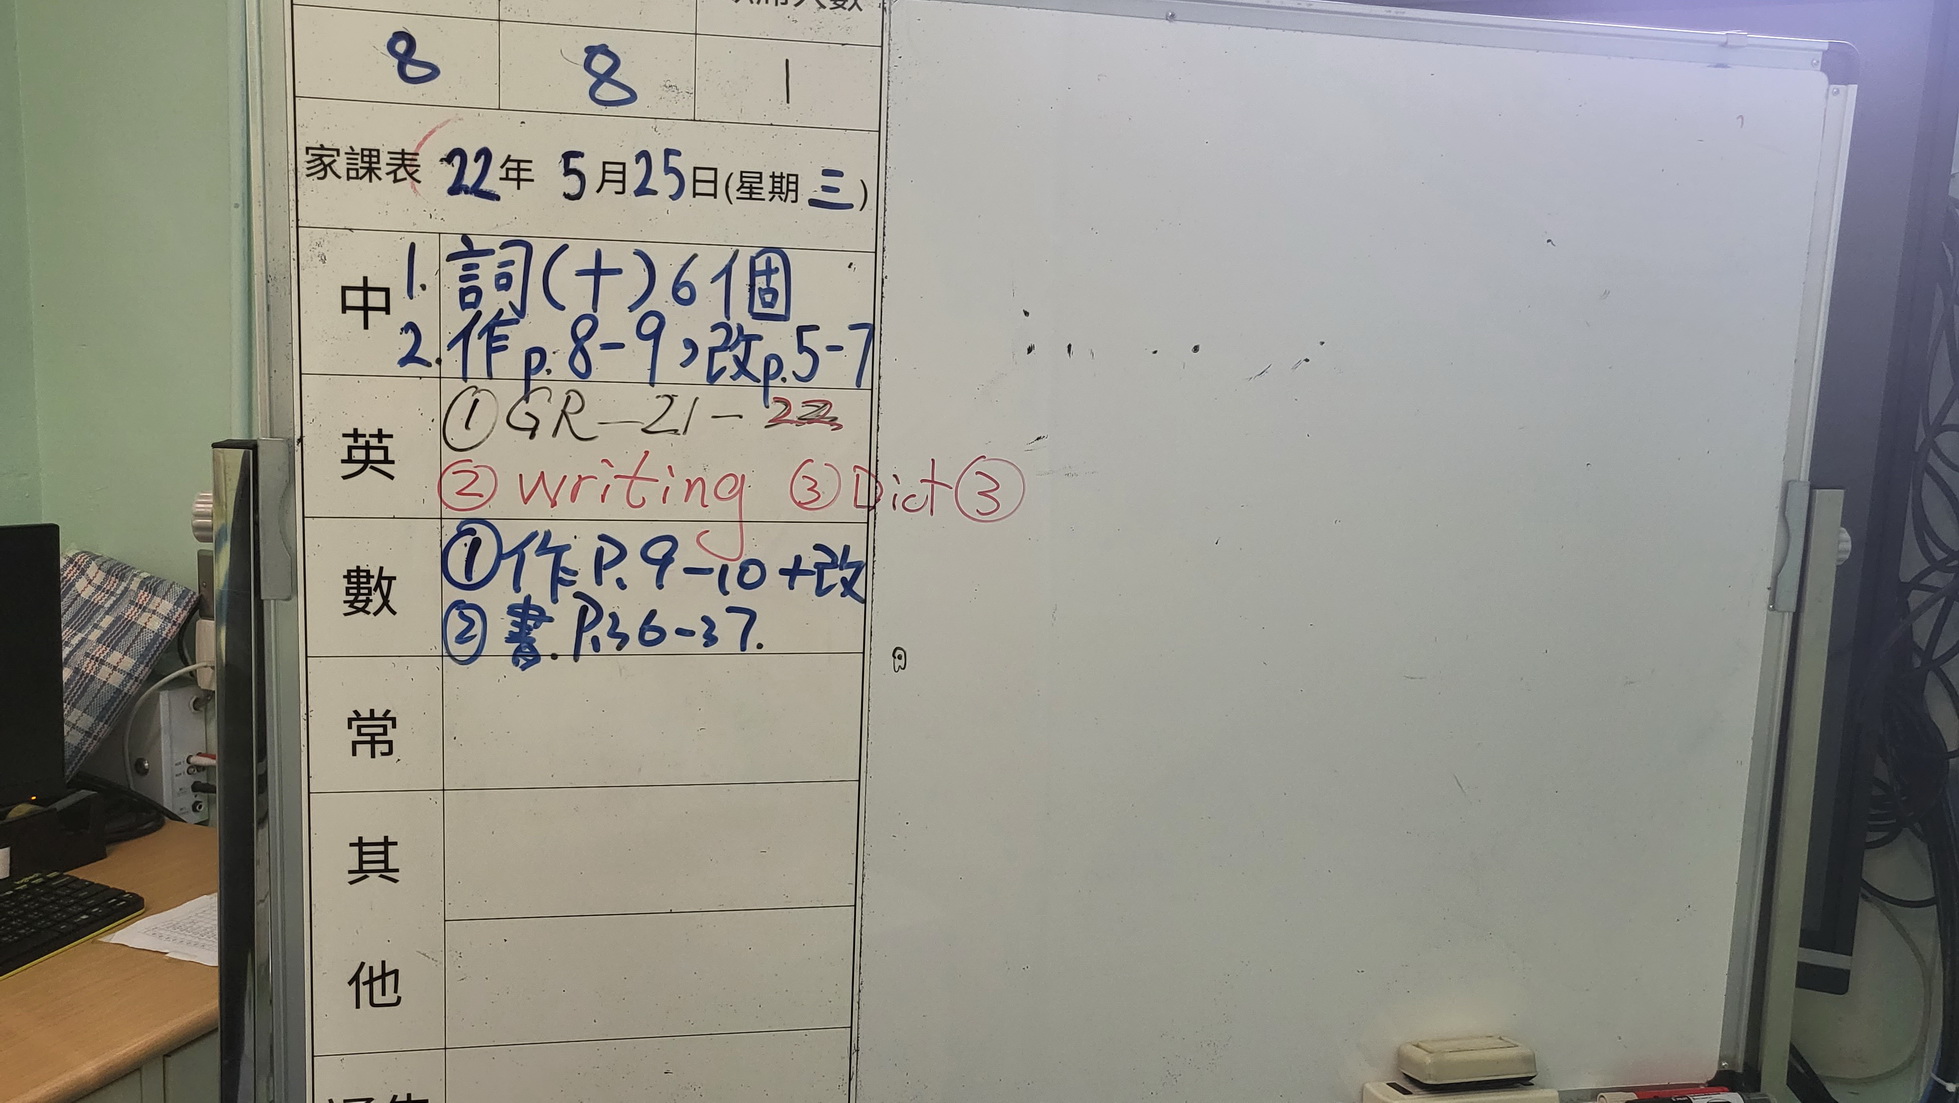 8 8 1
家課表 22年 5月25日(星期三)
中 1. 詞(十)6個
2. 作p.8-9,改p.5-7
英 ① GR-21-22
② writing ③ Dict ③
數 ① 作P.9-10+改
② 書.P.36-37.
常
其
他